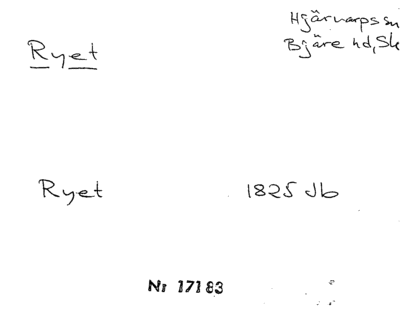 Hjärnarps sn
Ryet
Bjäre hd, Sk
Ryet 1825 Jb
Nr 17183